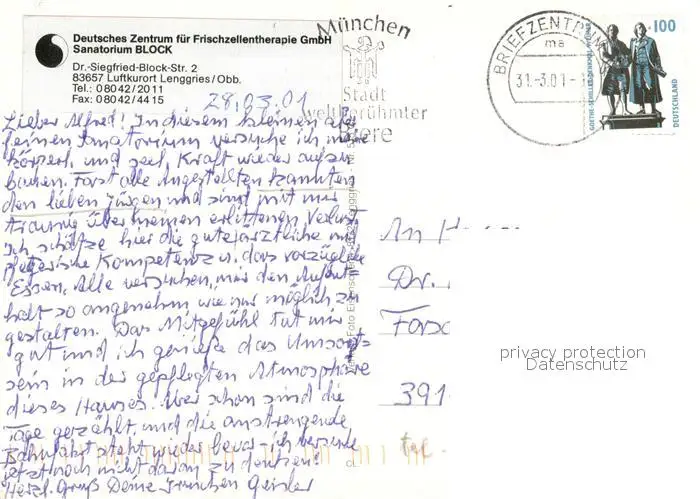 Deutsches Zentrum für Frischzellentherapie GmbH
Sanatorium BLOCK
Dr.-Siegfried-Block-Str. 2
83657 Luftkurort Lenggries/Obb.
Tel.: 0 80 42/20 11
Fax: 0 80 42/44 15
München
Stadt
weltberühmter
Biere
BRIEFZENTRUM
ma
31.-3.01-1
100
GOETHE-SCHILLER-DENKMAL WEIMAR
DEUTSCHLAND
28.03.01
Lieber Alfred! In diesem kleinen aber
feinen Sanatorium versuche ich mich
körperl. und seel. Kraft wieder aufzu
bauen. Fast alle Angestellten kannten
den lieben Jürgen und sind mit mir
traurig über meinen erlittenen Verlust.
Ich schätze hier die gute ärztliche und
pflegerische Kompetenz u. das vorzügliche
Essen. Alle versuchen, mir den Aufent=
halt so angenehm wie nur möglich zu
gestalten. Das Mitgefühl tut mir
gut und ich genieße das Umsorgt=
sein in der gepflegten Atmosphäre
dieses Hauses. Aber schon sind die
Tage gezählt, und die anstrengende
Bahnfahrt steht wieder bevor - ich versuche
jetzt noch nicht daran zu denken!
Herzl. Gruß Deine
An H
Dr.
Forsc
391
privacy protection
Datenschutz